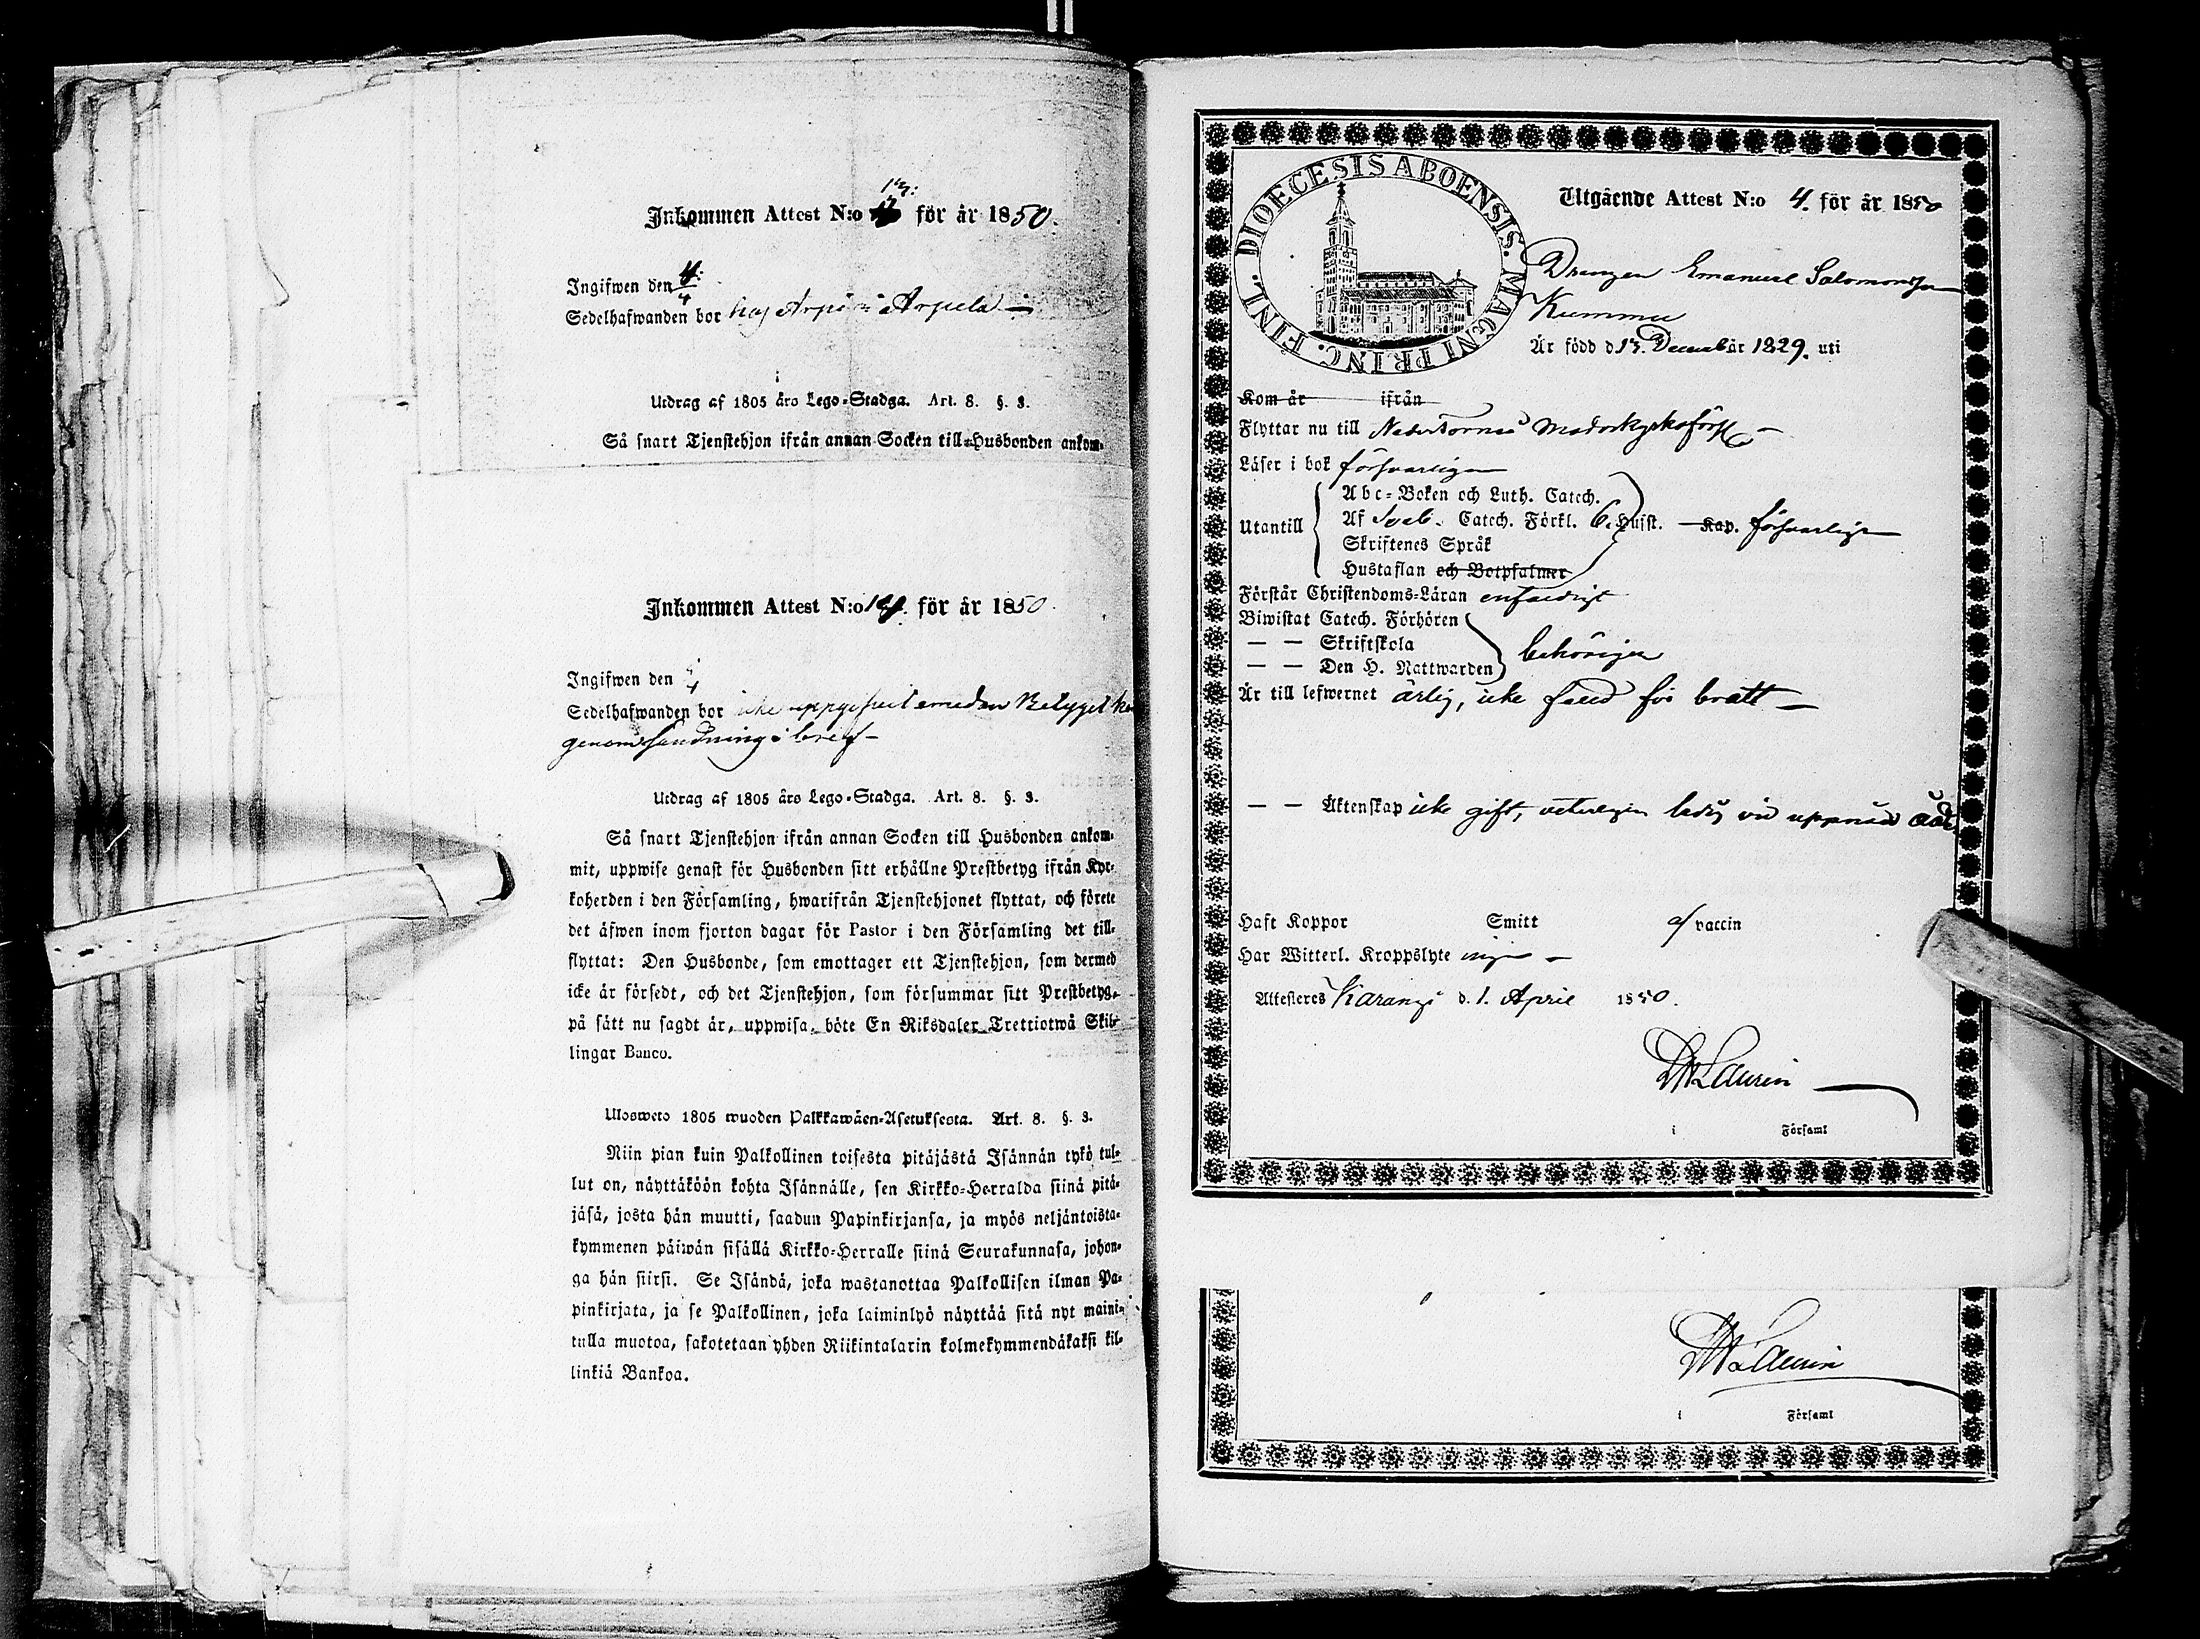 Inkommen Attest N:o 13: för år 1850.
Ingifwen den 4/4
Sedelhafwanden bor hos Arpi i Arpela
i
Utdrag af 1805 års Lego-Stadga. Art. 8. §. 3.
Så snart Tjenstehjon ifrån annan Socken till Husbonden ankom-
Inkommen Attest N:o 14. för år 1850.
Ingifwen den
Sedelhafwanden bor icke uppgifwit emedan Betyget
genom sändning i bref
Utdrag af 1805 års Lego-Stadga. Art. 8. §. 3.
Så snart Tjenstehjon ifrån annan Socken till Husbonden ankom-
mit, uppwise genast för Husbonden sitt erhållne Prestbetyg ifrån Kyr-
koherden i den Församling, hwarifrån Tjenstehjonet flyttat, och förete
det äfwen inom fjorton dagar för Pastor i den Församling det till-
flyttat: Den Husbonde, som emottager ett Tjenstehjon, som dermed
icke är försedt, och det Tjenstehjon, som försummar sitt Prestbetyg,
på sätt nu sagdt är, uppwisa, böte En Riksdaler Trettiotwå Skil-
lingar Banco.
Ulosweto 1805 wuoden Palkkawäen-Asetuksesta. Art. 8. §. 3.
Niin pian kuin Palkollinen toisesta pitäjästä Isännän tykö tul-
lut on, näyttäköön kohta Isännälle, sen Kirkko-Herralda siinä pitä-
jäsä, josta hän muutti, saadun Papinkirjansa, ja myös neljäntoista-
kymmenen päiwän sisällä Kirkko-Herralle siinä Seurakunnasa, johon-
ga hän siirsi. Se Isändä, joka wastanottaa Palkollisen ilman Pa-
pinkirjata, ja se Palkollinen, joka laiminlyö näyttää sitä nyt maini-
tulla muotoa, sakotetaan yhden Riikintalarin kolmekymmendäkaksi kil-
linkiä Bankoa.
DIOECESIS ABOENSIS. MAGNI PRINC. FINL.
Utgående Attest N:o 4. för år 1850
Drängen Emanuel Salomonsson
Kummu
Är född d 13. December år 1829. uti
Kom år ifrån
Flyttar nu till Neder Torneå Moderkyrkoförs
Läser i bok försvarligen
Abc-Boken och Luth. Catech.
Utantill Af Sveb. Catech. Förkl. 6. Hufst. Kap. försvarligen
Skriftenes Språk
Hustaflan och Botpsalmer
Förstår Christendoms-Läran enfaldigt
Biwistat Catech. Förhören
— — Skriftskola behörigen
— — Den H. Nattwarden
Är till lefwernet ärlig, icke fälld för brott
— — Äktenskap icke gift, veterligen ledig vid uppnådd
Haft Koppor Smitt af vaccin
Har Witterl. Kroppslyte inga
Attesteres Karungi d. 1. April 1850.
Laurin
i Församl
Laurin
i Församl